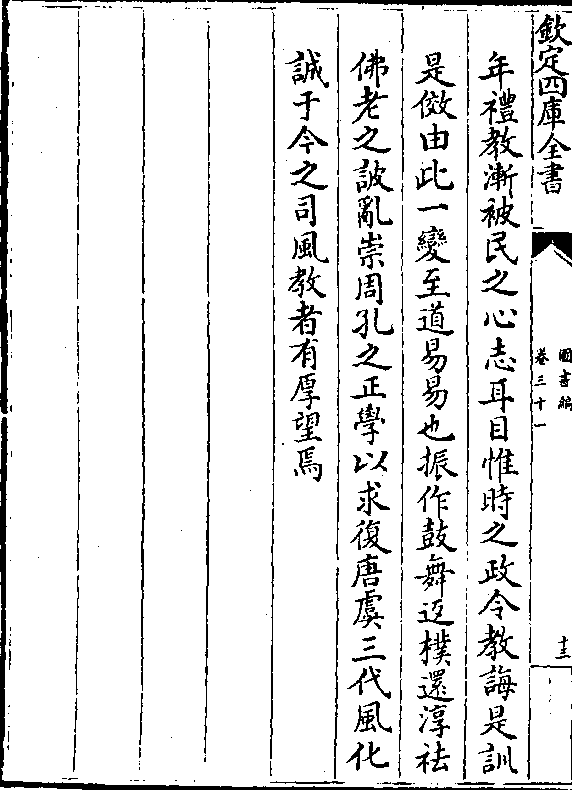 欽定四庫全書
圖書編
卷三十一
十三
年禮教漸被民之心志耳目惟時之政令教誨是訓
是傚由此一變至道易易也振作鼓舞返樸還淳祛
佛老之詖亂崇周孔之正學以求復唐虞三代風化
誠于今之司風教者有厚望焉